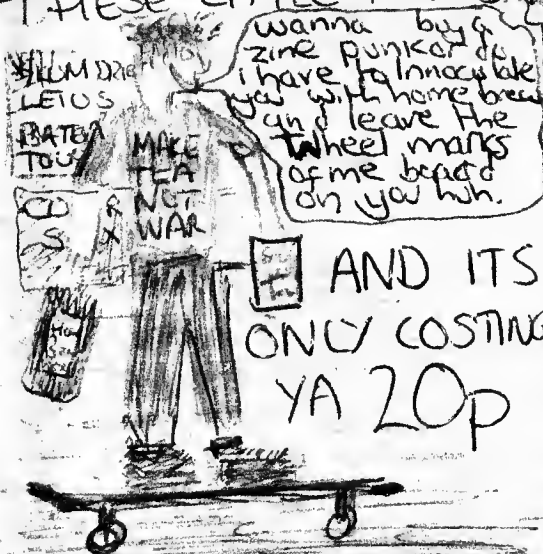 THESE LITTLE
wanna buy a
zine punkor do
i have to innoculate
you with home brew
and leave the
wheel marks
of me board
on you huh.
LETUS
MAKE
TEA
NOT
WAR
CD
S
AND ITS
ONLY COSTING
YA 20p